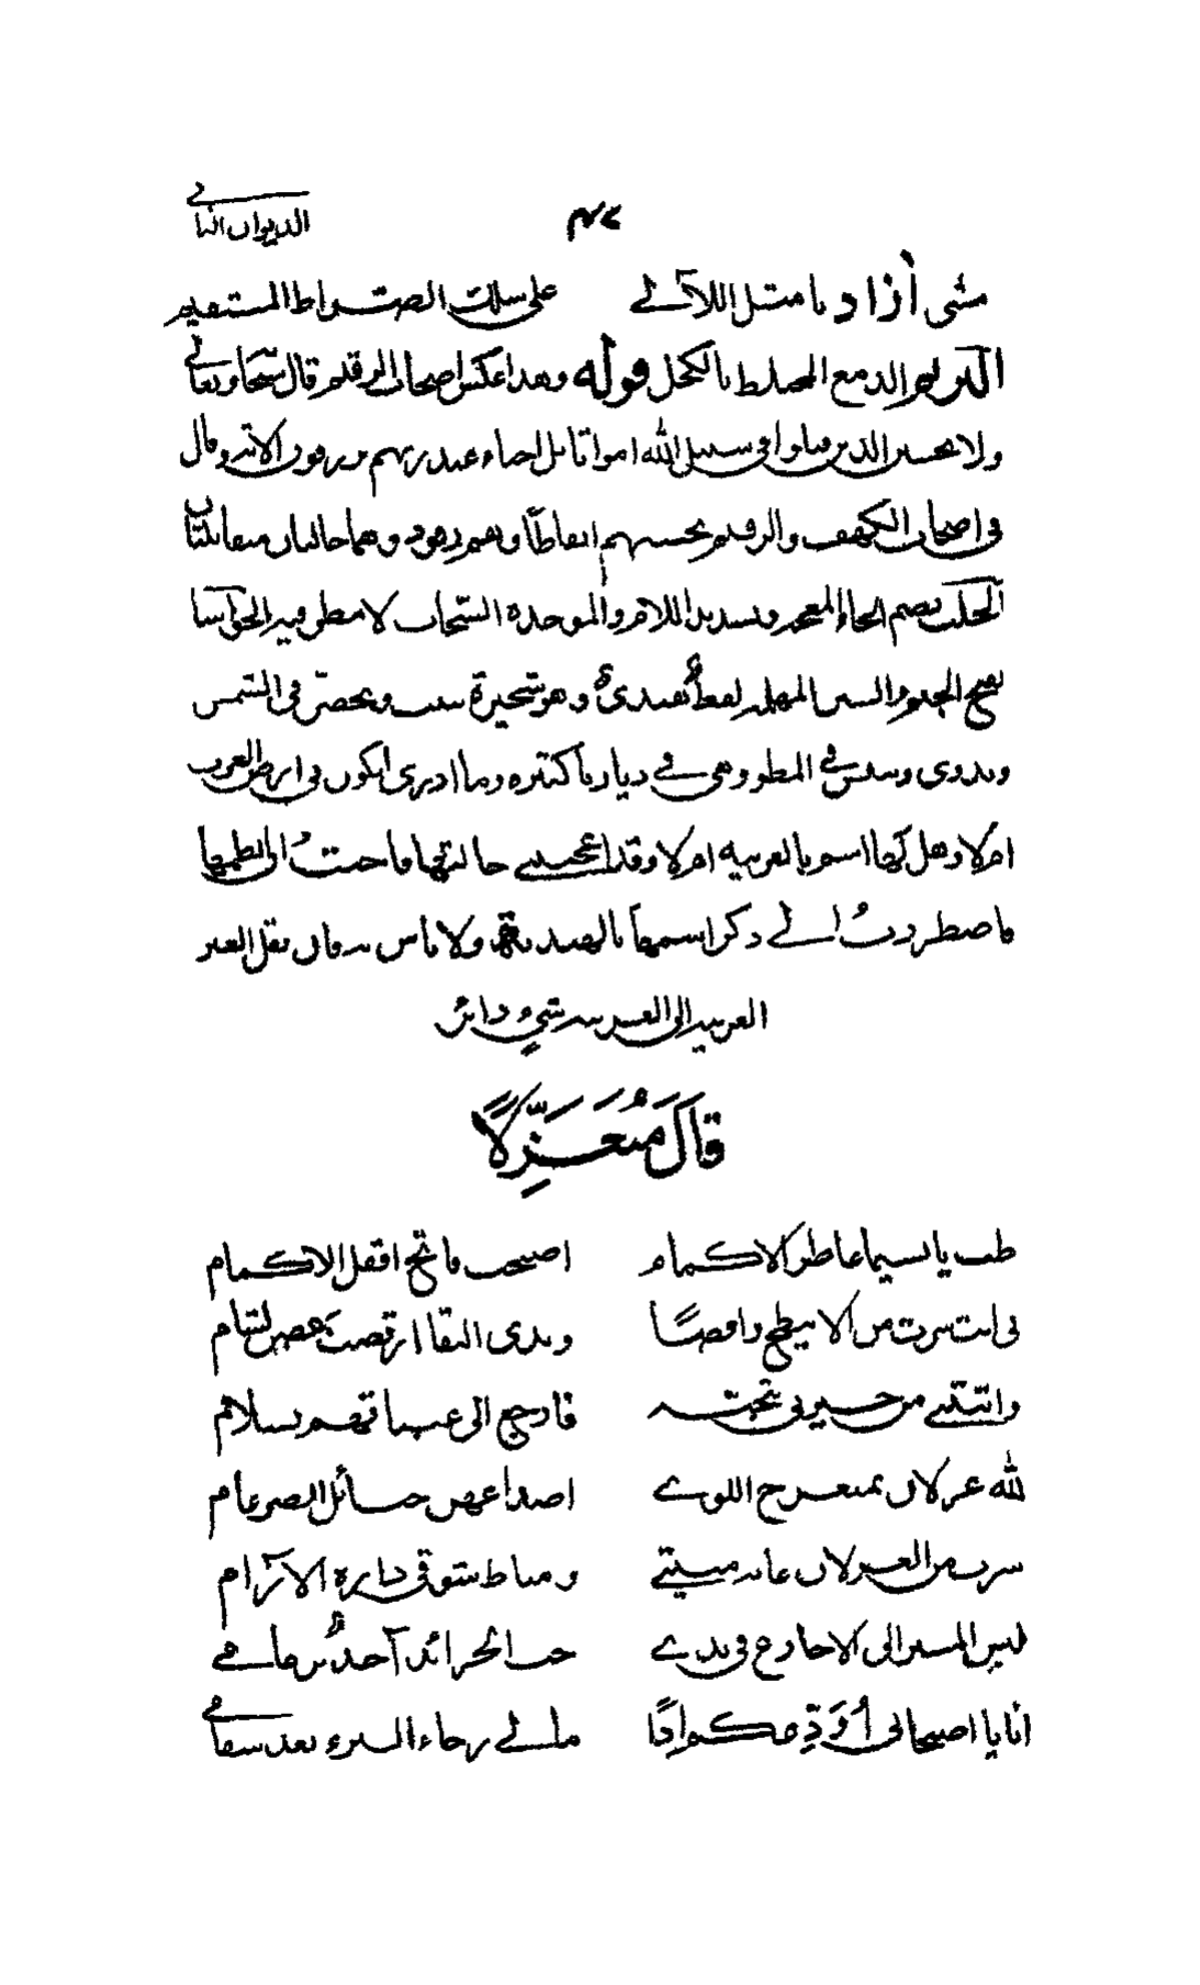 الديوان الثاني
مشى أزاد يا مثل اللآلي على سلك الصراط المستقيم
الدمع المخلط بالكحل قوله وهذا عكس اصحاب الرقيم قال سبحانه وتعالى
ولا تحسبن الذين قتلوا في سبيل الله امواتا بل احياء عند ربهم يرزقون الآية وقال
في اصحاب الكهف والرقيم تحسبهم ايقاظا وهم رقود وهما حالتان متقابلتان
الخلب بضم الخاء المعجمة وتشديد اللام والموحدة السحاب لا مطر فيه
بفتح الجيم والسين المهملة لفظ هندي وهو شجيرة تنبت وتخضر في الشمس
وتذوى وتيبس في المطر وهي في ديارنا كثيرة وما ادرى اتكون في ارض العرب
ام لا وهل لها اسم بالعربية ام لا وقد اعجبني حالتها فاحتجت الى نظمها
فاضطررت الى ذكر اسمها بالهندية ولا باس به فان نقل الغير
العربية الى العربية شيء دائر
قال متغزلا
طب يا نسيما عاطر الاكمام اصبحت فاتح اقفل الاكمام
من الابيطح راقصا وبدى النقا ارقصت غصن بشام
واتيتني من جيرتي بتحية فارجع الى عتباتهم بسلام
لله غزلان بمنعرج اللوى اصداغهن حبائل الضرغام
سرب من الغزلان غاية منيتي ومناط شوقي دارة الآرام
ليس المسير الى الاجارع في يدي حب الخرائد آخذ بزمامي
انا يا اصيحابي اودع كواعبا مالي رجاء البرء بعد سقامي